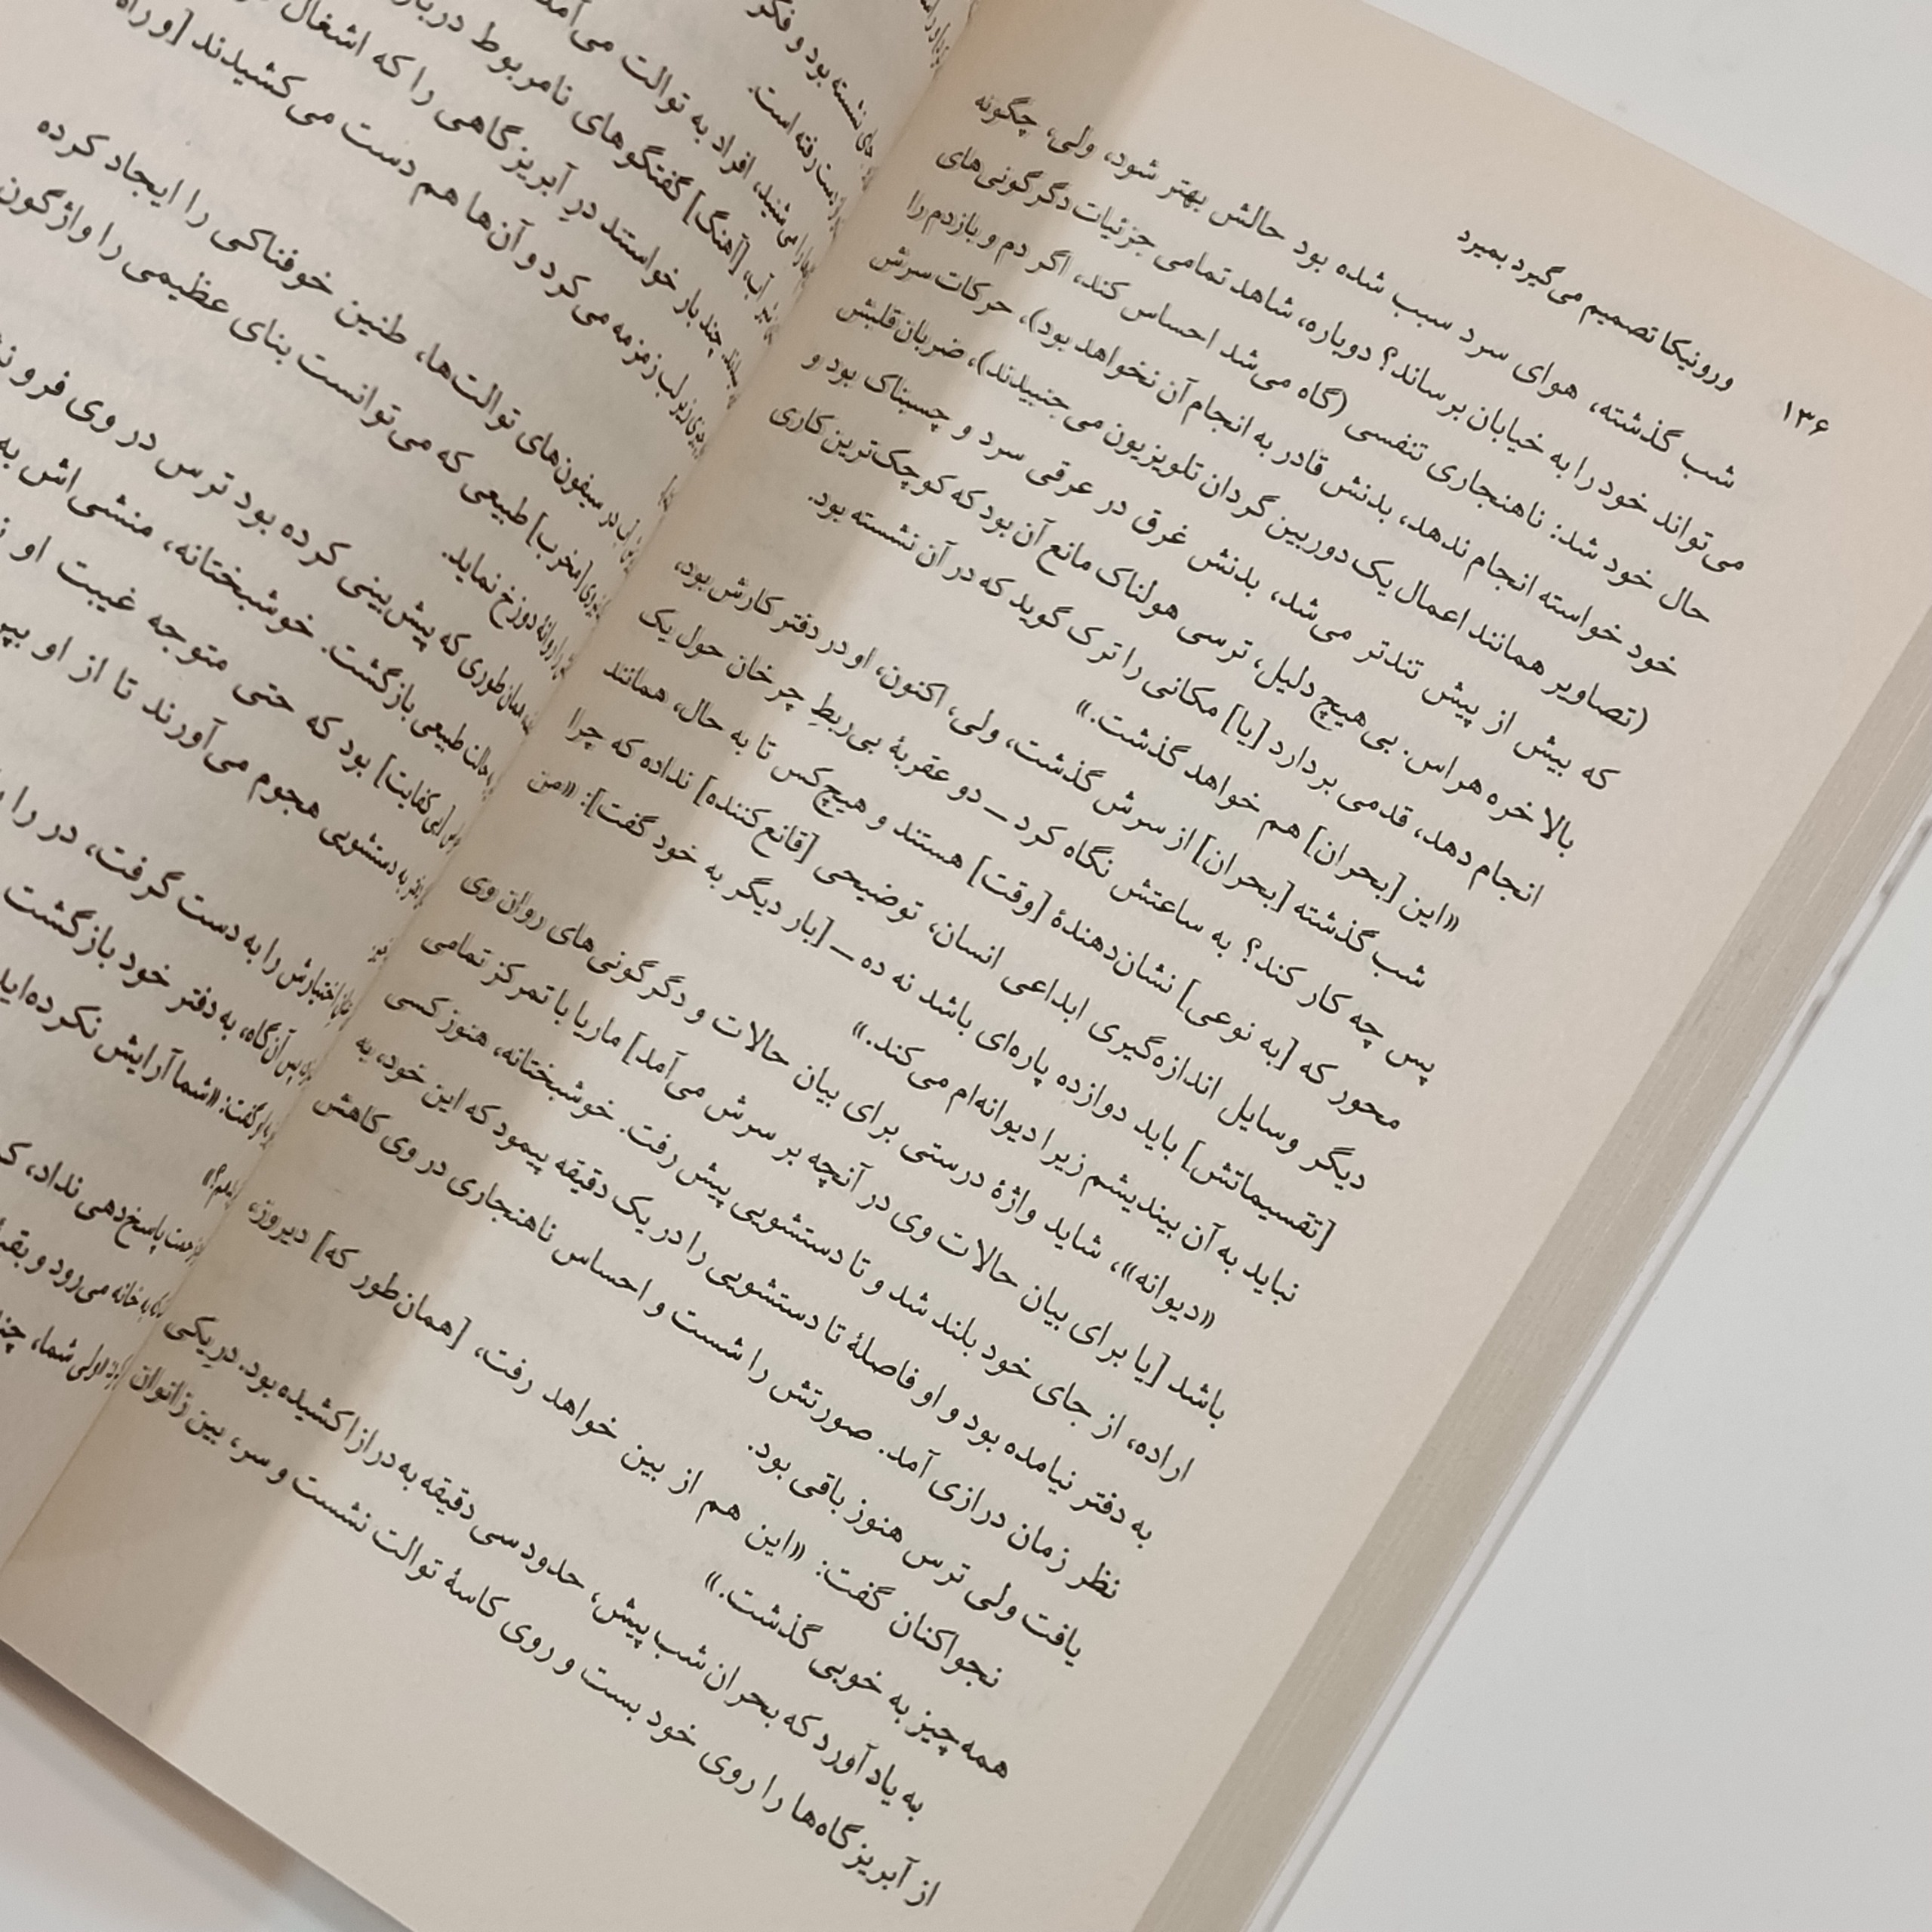 ۱۳۶
ورونیکا تصمیم می‌گیرد بمیرد
شب گذشته، هوای سرد سبب شده بود حالش بهتر شود، ولی، چگونه
می‌تواند خود را به خیابان برساند؟ دوباره، شاهد تمامی جزئیات دگرگونی‌های
حال خود شد: ناهنجاری تنفسی (گاه می‌شد احساس کند، اگر دم و بازدم را
خود خواسته انجام ندهد، بدنش قادر به انجام آن نخواهد بود)، حرکات سرش
(تصاویر همانند اعمال یک دوربین گردان تلویزیون می‌جنبیدند)، ضربان قلبش
که بیش از پیش تندتر می‌شد، بدنش غرق در عرقی سرد و چسبناک بود و
بالاخره هراس. بی‌هیچ دلیل، ترسی هولناک مانع آن بود که کوچک‌ترین کاری
انجام دهد، قدمی بردارد [یا] مکانی را ترک گوید که در آن نشسته بود.
«این [بحران] هم خواهد گذشت.»
شب گذشته [بحران] از سرش گذشت، ولی، اکنون، او در دفتر کارش بود،
پس چه کار کند؟ به ساعتش نگاه کرد ــ دو عقربهٔ بی‌ربطِ چرخان حول یک
محور که [به نوعی] نشان‌دهندهٔ [وقت] هستند و هیچ‌کس تا به حال، همانند
دیگر وسایل اندازه‌گیری ابداعی انسان، توضیحی [قانع‌کننده] نداده که چرا
[تقسیماتش] باید دوازده پاره‌ای باشد نه ده ــ [بار دیگر به خود گفت]: «من
نباید به آن بیندیشم زیرا دیوانه‌ام می‌کند.»
«دیوانه»، شاید واژهٔ درستی برای بیان حالات و دگرگونی‌های روان وی
باشد [یا برای بیان حالات وی در آنچه بر سرش می‌آمد] ماریا با تمرکز تمامی
اراده، از جای خود بلند شد و تا دستشویی پیش رفت. خوشبختانه، هنوز کسی
به دفتر نیامده بود و او فاصلهٔ تا دستشویی را در یک دقیقه پیمود که این خود، به
نظر زمان درازی آمد. صورتش را شست و احساس ناهنجاری در وی کاهش
یافت ولی ترس هنوز باقی بود.
نجواکنان گفت: «این هم از بین خواهد رفت، [همان‌طور که] دیروز،
همه‌چیز به خوبی گذشت.»
به یاد آورد که بحران شب پیش، حدود سی دقیقه به درازا کشیده بود. درِ یکی
از آبریزگاه‌ها را روی خود بست و روی کاسهٔ توالت نشست و سر، بین زانوان
نشسته بود و فکر
دست رفته است.
افراد به توالت می‌آمد
[آهنگ] گفتگوهای نامربوط
چند بار خواستند درِ آبریزگاهی را که اشغال
زیر لب زمزمه می‌کرد و آن‌ها هم دست می‌کشیدند [و راه
در سیفون‌های توالت‌ها، طنین خوفناکی را ایجاد کرده
[مخرب] طبیعی که می‌توانست بنای عظیمی را واژگون
را روانهٔ دوزخ نماید.
همان‌طوری که پیش‌بینی کرده بود ترس در وی
حالت طبیعی بازگشت. خوشبختانه، منشی‌اش
[بی‌کفایت] بود که حتی متوجه غیبت او
به دستشویی هجوم می‌آورند تا از او
اختیارش را به دست گرفت، در را
پس آن‌گاه، به دفتر خود بازگشت
گفت: «شما آرایش نکرده‌اید
پاسخ‌دهی نداد،
به خانه می‌رود و
ولی شما،